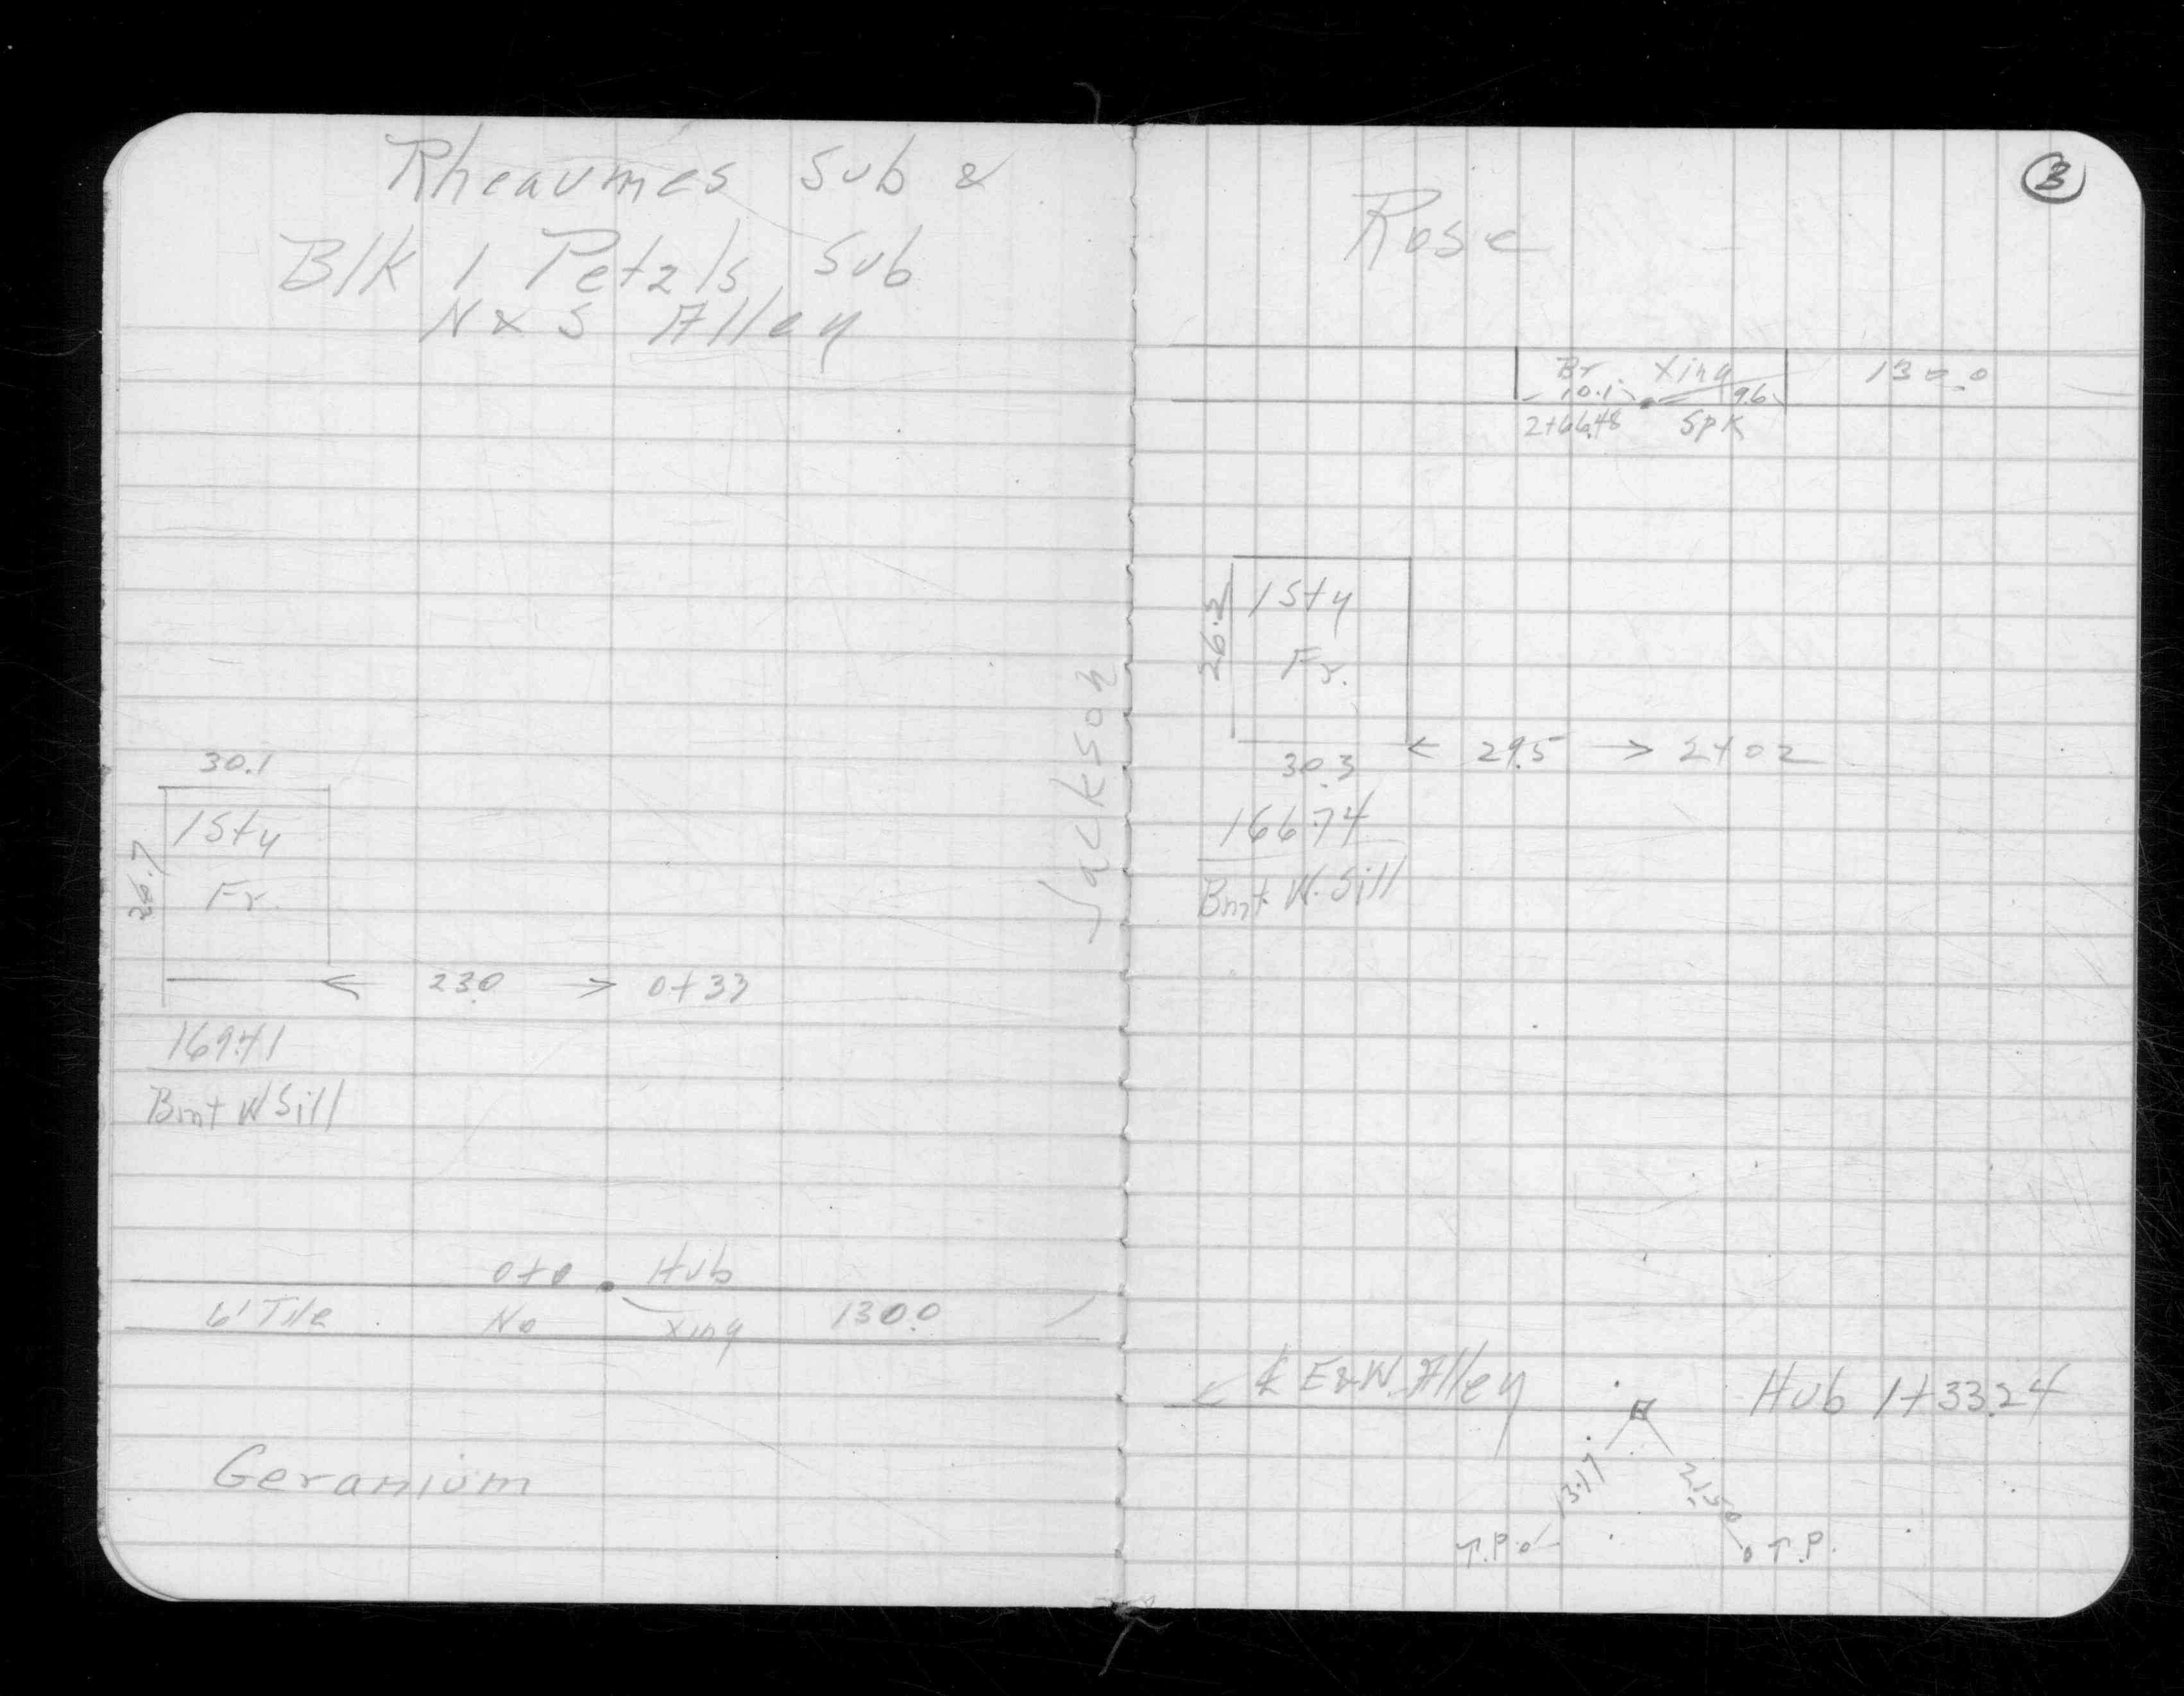 Rheaume's Sub &
Blk 1 Petzls Sub
N & S Alley
30.1
1 Sty
Fr.
26.7
← 23.0 → 0+33
169.41
Bmt W Sill
0+0 Hub
6' Tile No Xing 130.0
Geranium
Jackson
3
Rose
Br. Xing 130.0
10.1 9.6
2+66.48 Spk
1 Sty
Fr.
26.2
← 29.5 → 2+02
30.3
166.74
Bmt W. Sill
℄ E&W. Alley Hub 1+33.24
T.P. T.P.